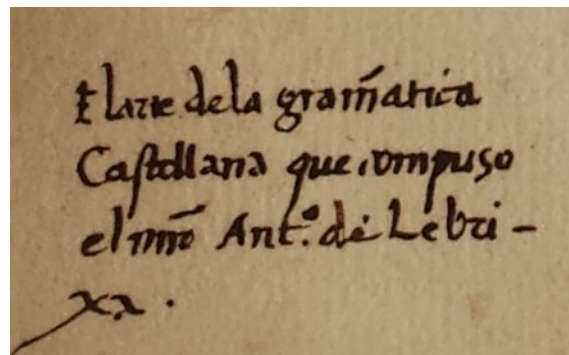 El arte dela gram̃atica
Castellana que compuso
el mr̃o Ant.º de Lebri-
xa.